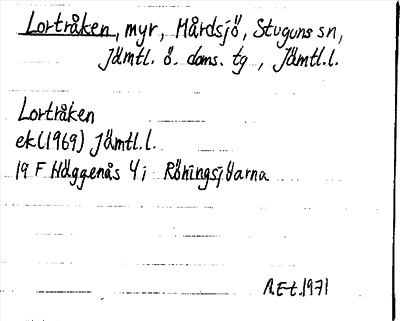 Lortråken, myr, Mårdsjö, Stuguns sn,
Jämtl. ö. doms. tg, Jämtl.l.
Lortråken
ek(1969) Jämtl.l.
19 F Häggenås 4 i Röningsjöarna
A.Et.1971